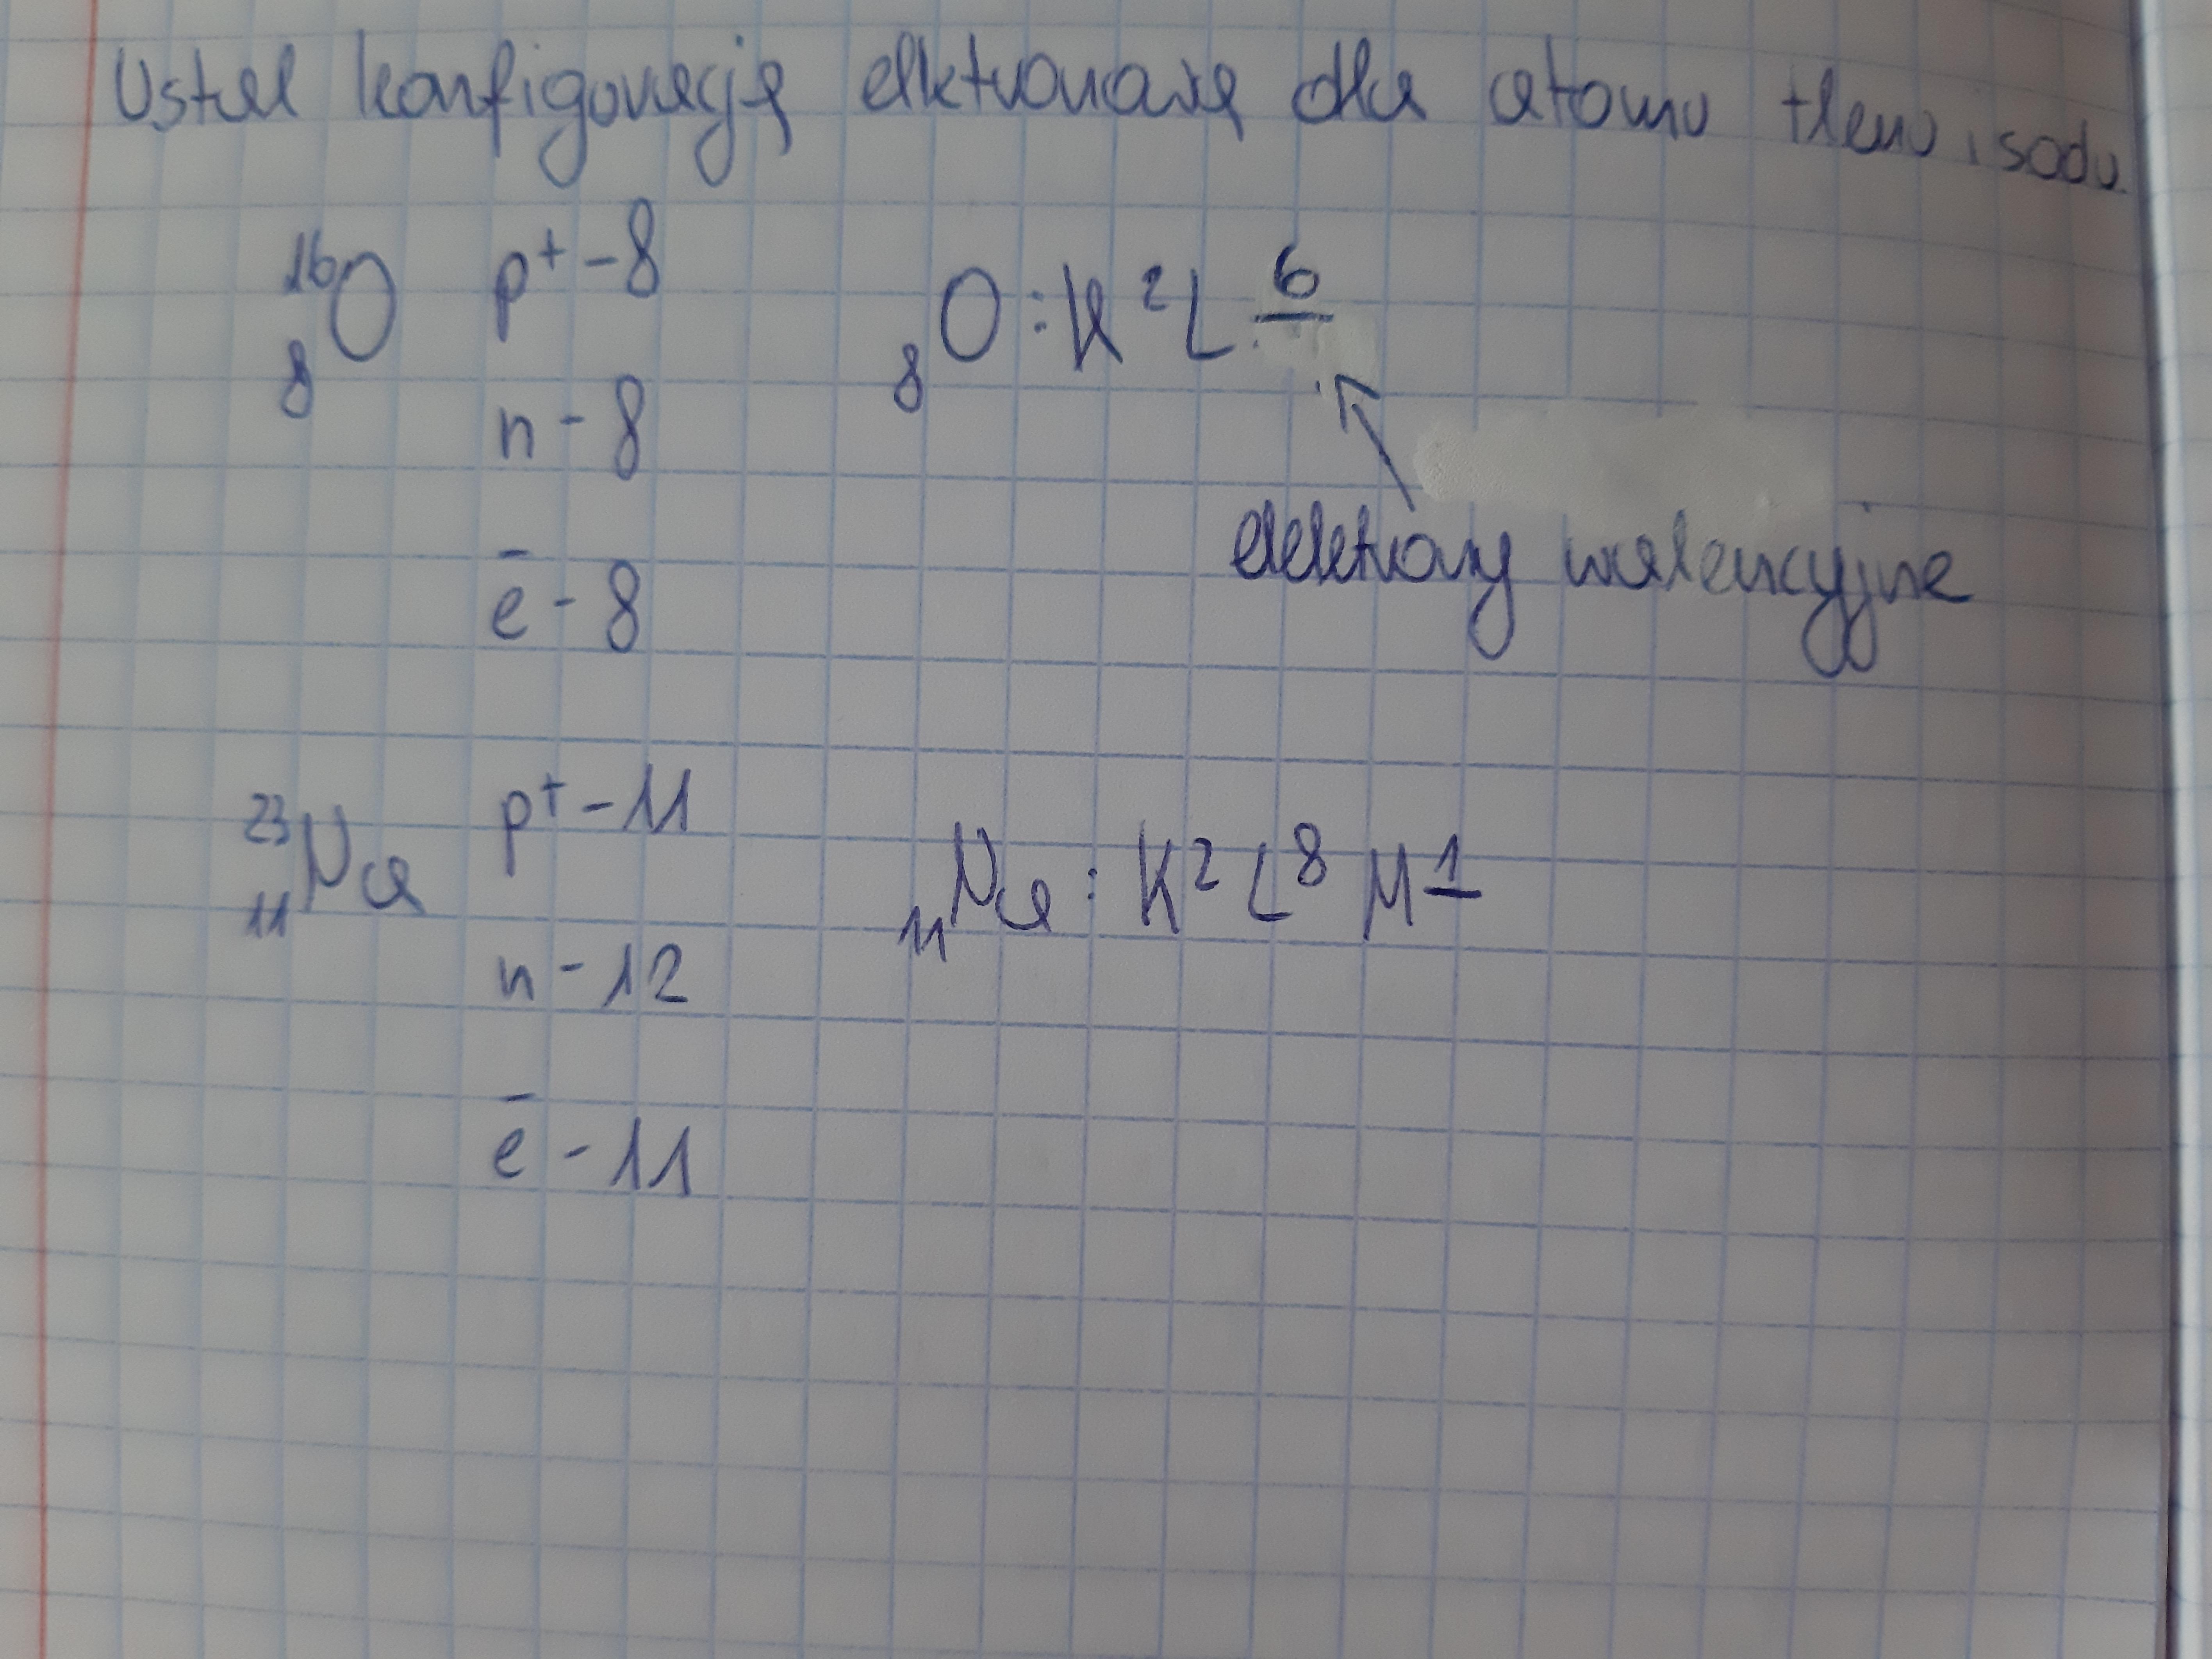 Ustal konfigurację elktronową dla atomu tlenu i sodu.
¹⁶₈O p⁺ - 8 ₈O : K² L⁶
n - 8
elektrony walencyjne
e⁻ - 8
²³₁₁Na p⁺ - 11 ₁₁Na : K² L⁸ M¹
n - 12
e⁻ - 11